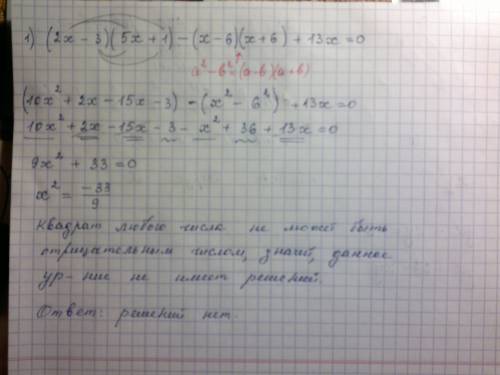 1) (2x - 3)(5x + 1) - (x - 6)(x + 6) + 13x = 0
a² - b² = (a - b)(a + b)
(10x² + 2x - 15x - 3) - (x² - 6²) + 13x = 0
10x² + 2x - 15x - 3 - x² + 36 + 13x = 0
9x² + 33 = 0
x² = -33/9
Квадрат любого числа не может быть
отрицательным числом, значит, данное
ур-ние не имеет решений.
Ответ: решений нет.